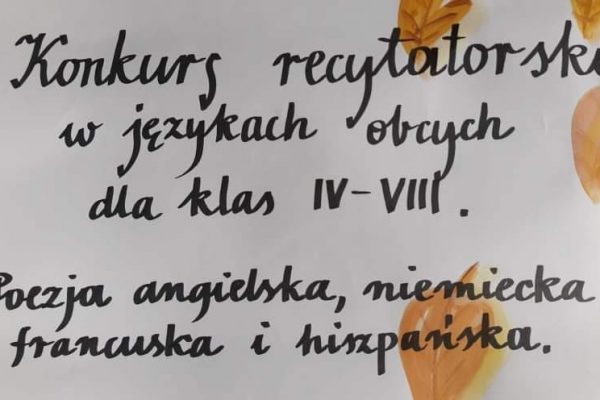 Konkurs recytatorski
w językach obcych
dla klas IV-VIII.
Poezja angielska, niemiecka
francuska i hiszpańska.